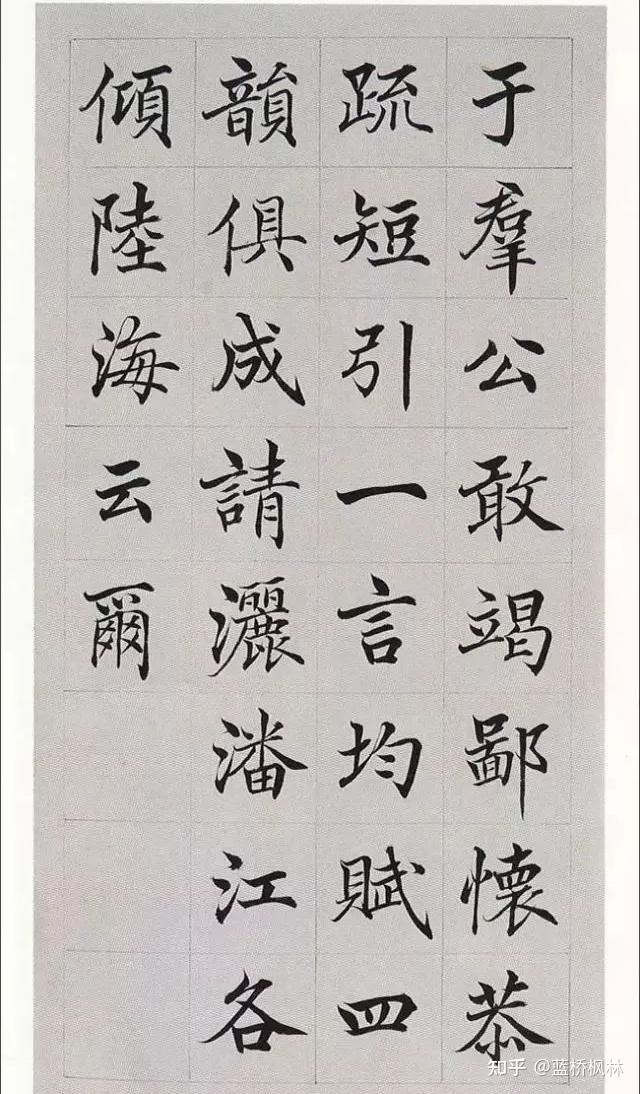 于羣公敢竭鄙懷恭
疏短引一言均賦四
韻俱成請灑潘江各
傾陸海云爾
知乎 @蓝桥枫林